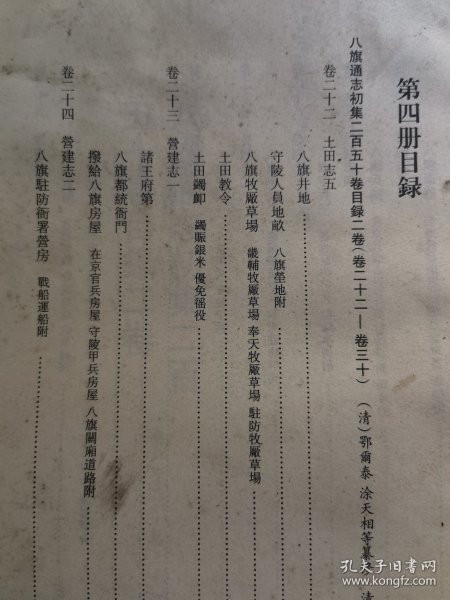 第四册目録
八旗通志初集二百五十卷目録二卷(卷二十二—卷三十) (清)鄂爾泰 涂天相等纂
卷二十二 土田志五
八旗井地
守陵人員地畝 八旗塋地附
八旗牧廠草場 畿輔牧廠草場 奉天牧廠草場 駐防牧廠草場
土田教令
土田蠲卹 蠲賑銀米 優免徭役
卷二十三 營建志一
諸王府第
八旗都統衙門
撥給八旗房屋 在京官兵房屋 守陵甲兵房屋 八旗關廂道路附
卷二十四 營建志二
八旗駐防衙署營房 戰船運船附
孔夫子旧书网